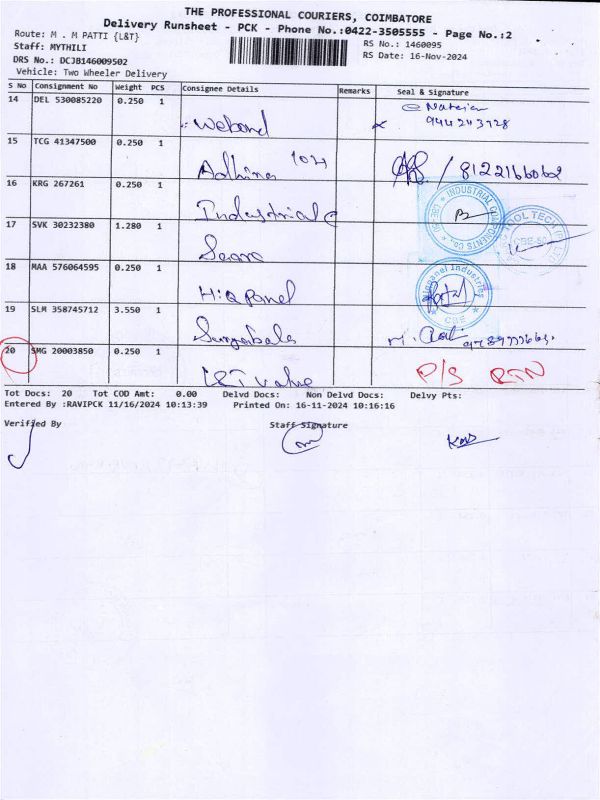 THE PROFESSIONAL COURIERS, COIMBATORE
Delivery Runsheet - PCK - Phone No.:0422-3505555 - Page No.:2
Route: M . M PATTI {L&T}
RS No.: 1460095
Staff: MYTHILI
RS Date: 16-Nov-2024
DRS No.: DCJB146009502
Vehicle: Two Wheeler Delivery
S No Consignment No Weight PCS Consignee Details Remarks Seal & Signature
14 DEL 530085220 0.250 1
15 TCG 41347500 0.250 1
Adhina
8122166062
16 KRG 267261 0.250 1
Industrial
INDUSTRIAL COMPONENTS CO.
17 SVK 30232380 1.280 1
CBE-50
18 MAA 576064595 0.250 1
Hi Q Panel
Panel Industries
CBE
19 SLM 358745712 3.550 1
20 SMG 20003850 0.250 1
L&T Valve
P/S RTN
Tot Docs: 20 Tot COD Amt: 0.00 Delvd Docs: Non Delvd Docs: Delvy Pts:
Entered By :RAVIPCK 11/16/2024 10:13:39 Printed On: 16-11-2024 10:16:16
Verified By Staff Signature